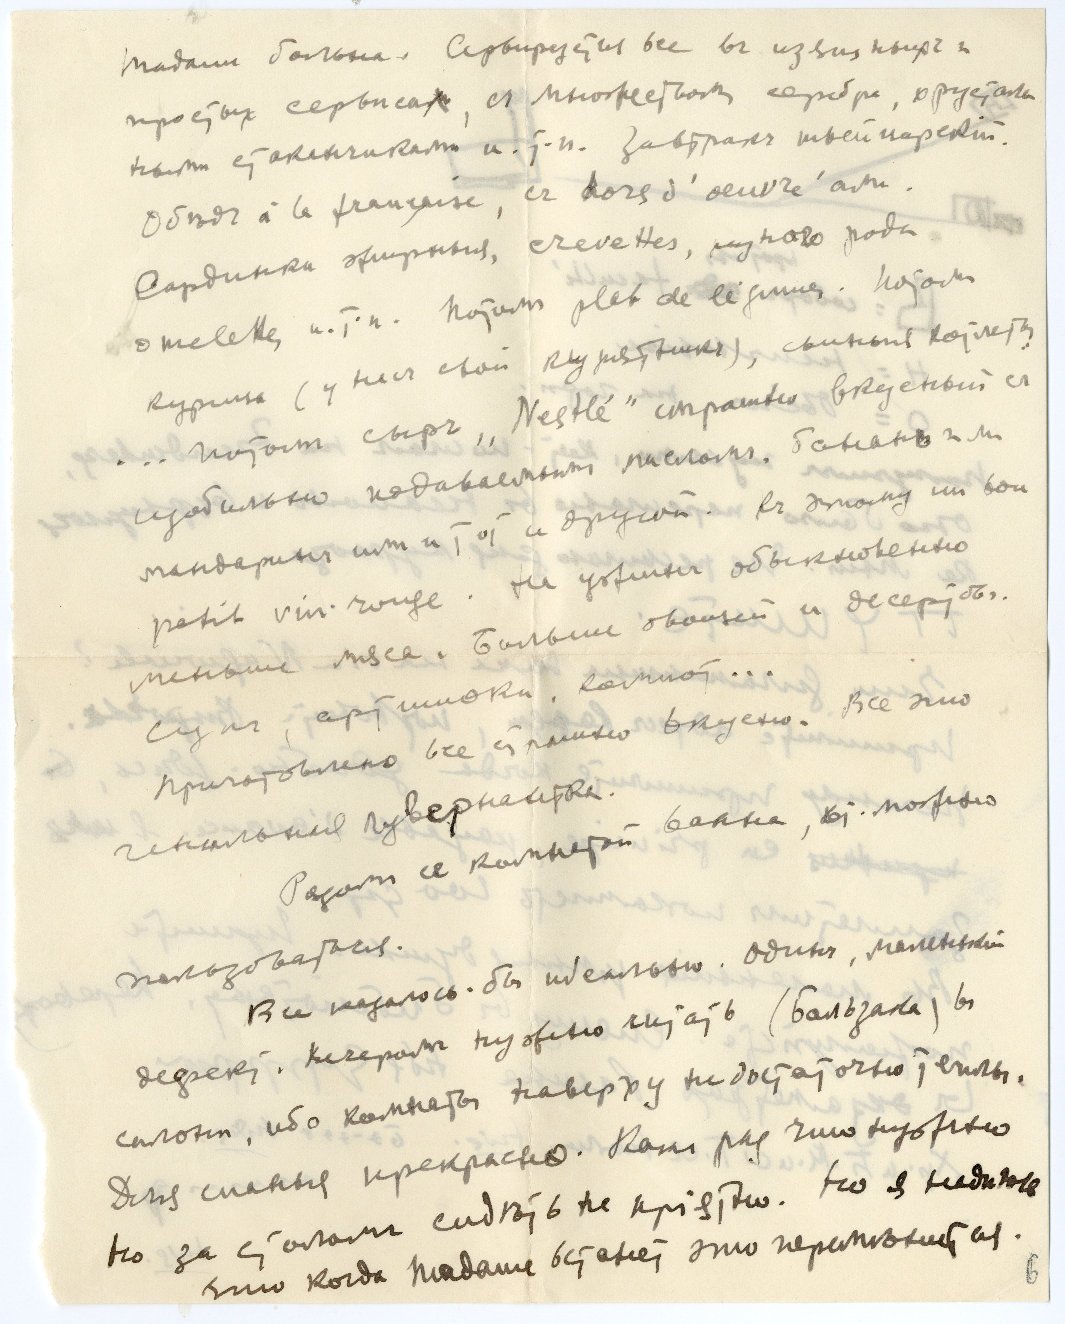 Madame больна. Сервируется все въ изящныхъ и
простыхъ сервисахъ, съ множествомъ серебра, хрусталь
ными стаканчиками и.т.п. Завтракъ швейцарскій.
Обѣдъ à la française, съ hors d'oeuvre'ами.
Сардинки жирныя, crevettes, рода
omelette, и.т.п. Потомъ plat de légumes. Потомъ
курица (у насъ свой курятникъ), свиныя котлеты
... Потомъ сыръ „Nestlé" страшно вкусный съ
обильно подаваемымъ масломъ. Бананъ или
мандаринъ или и тот и другой. Къ этому un bon
petit vin rouge. На ужинъ обыкновенно
меньше мяса. Больше овощей и десертовъ.
Супъ, артишоки, компот...
Приготовлено все страшно вкусно. Все это
генiальная гувернантка.
Рядомъ съ комнатой ванна, кот. можно
пользоваться.
Все казалось-бы идеально. Одинъ, маленькій
дефект. Вечеромъ нужно читать (Бальзака) въ
салонѣ, ибо комнаты наверху недостаточно теплы.
Для спанья прекрасно. Какъ раз что нужно
Но за столомъ сидѣть не пріятно. Но я надѣюсь
что когда Madame встанет это перемѣнится.
6